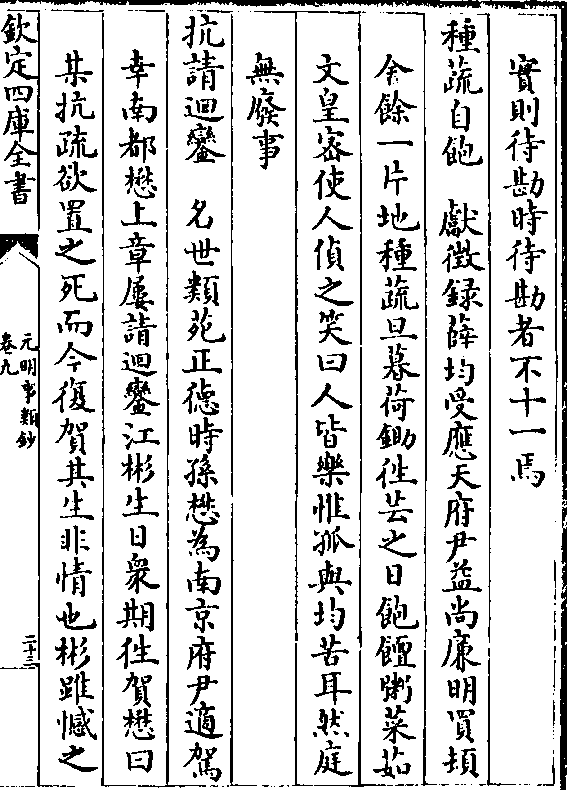 實則待勘時待勘者不十一焉
種蔬自飽　獻徴録薛均受應天府尹益尚廉明買頬
舍餘一片地種蔬旦暮荷鋤徃芸之日飽饘粥菜茹
文皇宻使人偵之笑曰人皆樂惟孤與均苦耳然庭
無廢事
抗請迴鑾　名世類苑正德時孫懋為南京府尹適駕
幸南都懋上章屢請迴鑾江彬生日衆期徃賀懋曰
某抗疏欲置之死而今復賀其生非情也彬雖憾之
欽定四庫全書
元明事類鈔
卷九
二十三